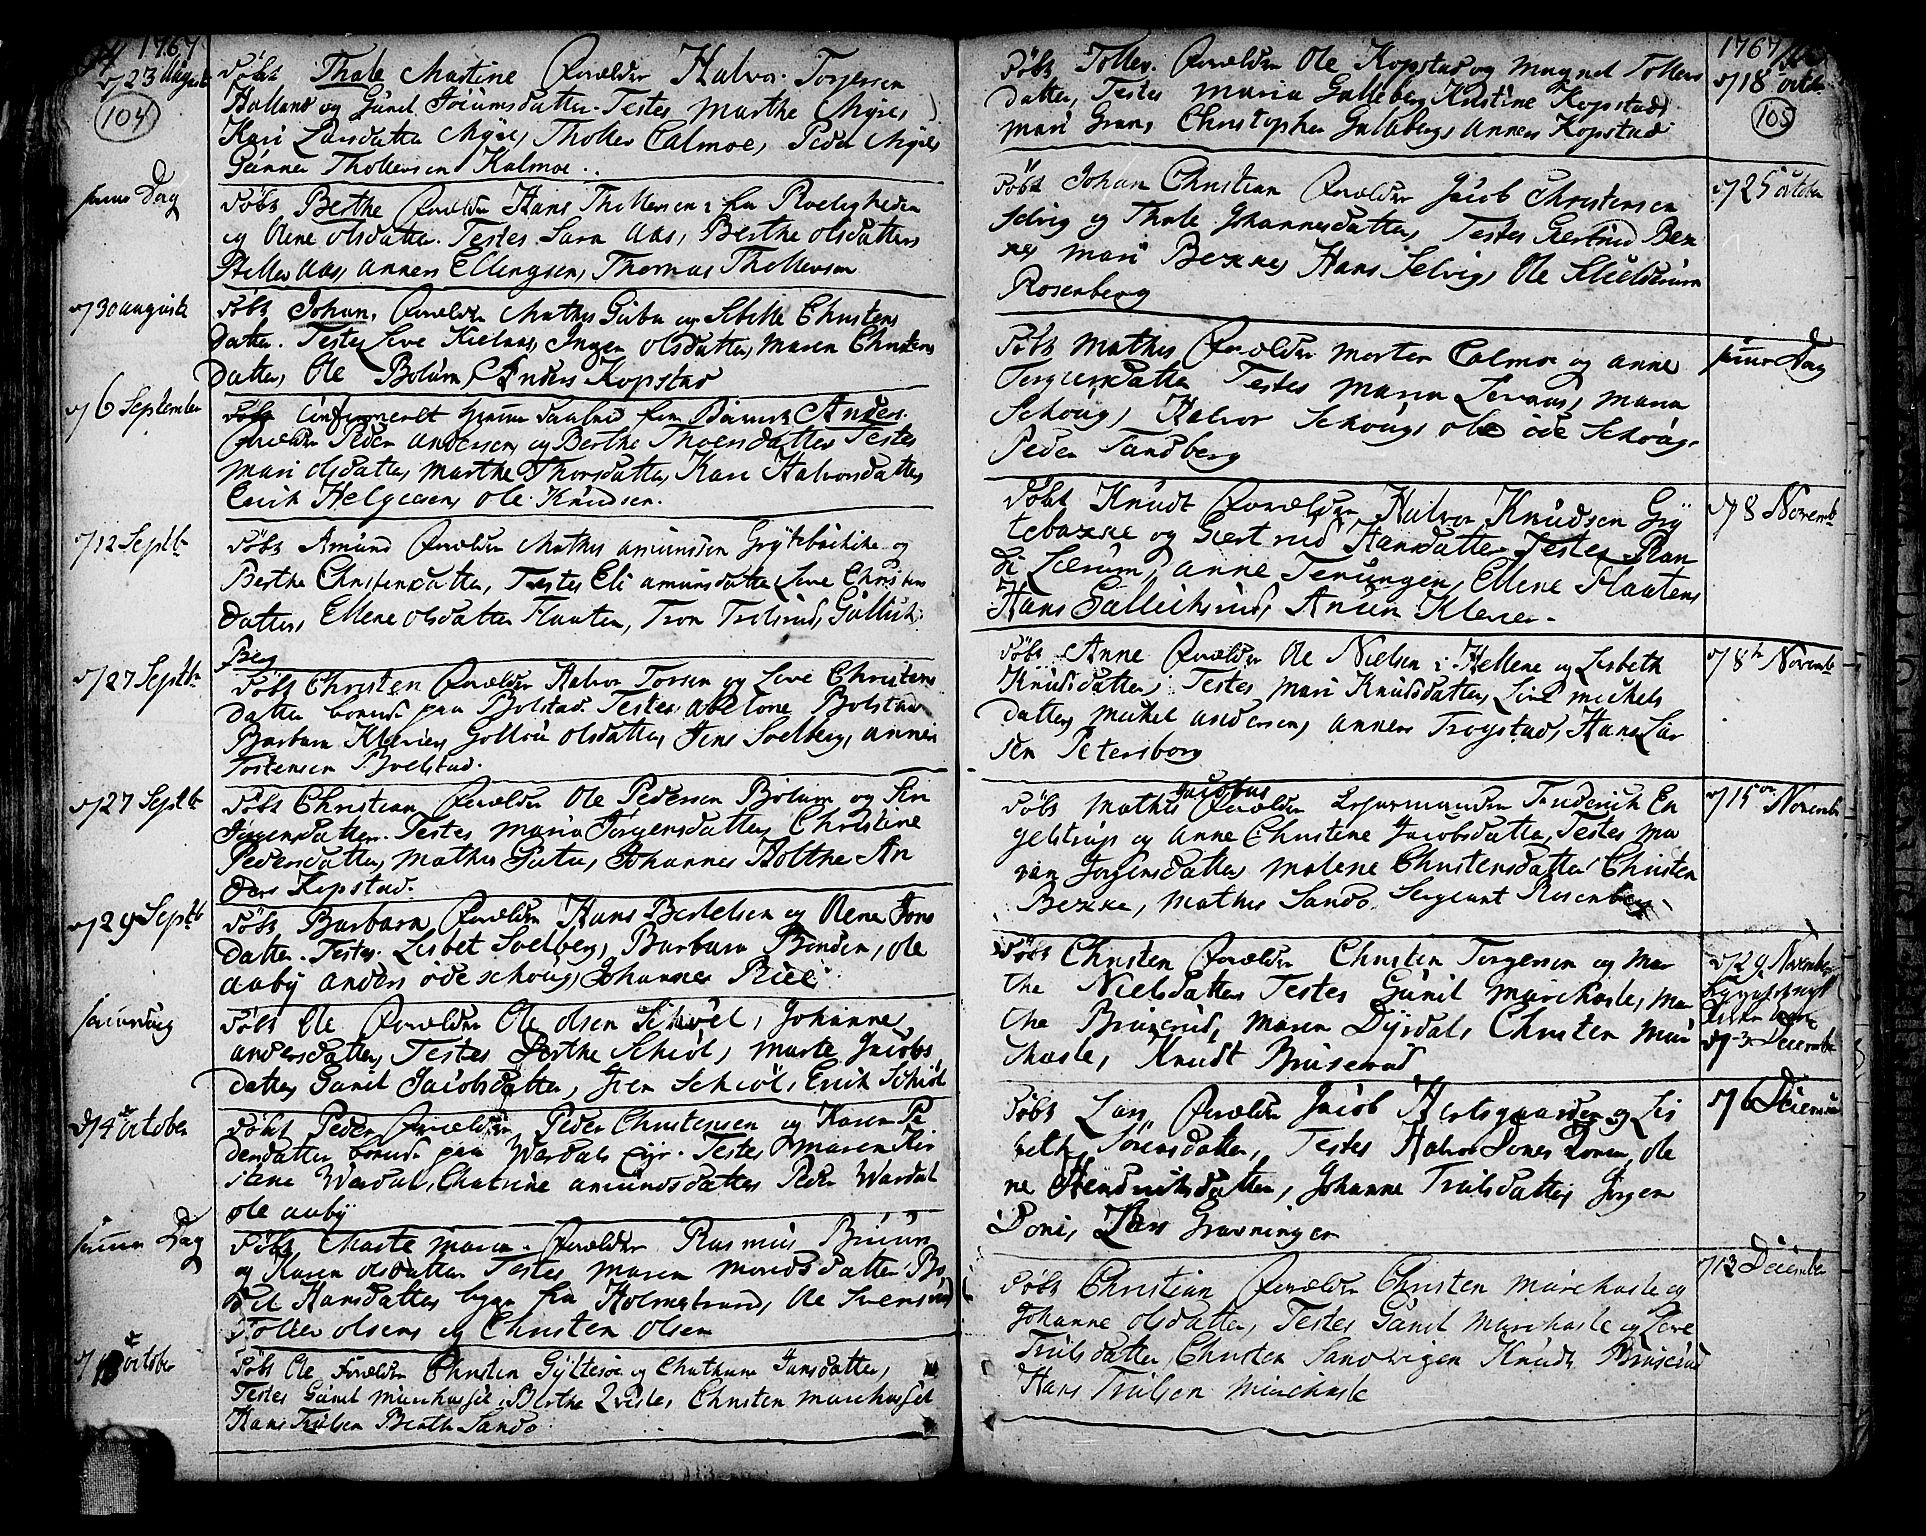 1767
d/ 23 August
104
Döbt Thale Martine Foræld: Halvor Torgersen
Holland og Gunil Joiumsdatter. Testes Marthe Myre,
Kari Larsdatter Myre, Thollev Calmoe, Peder Myre
Gunner Thollevsen Kalmoe.
samme Dag
Döbt Berthe Foræld: Hans Thollevsen i fra Rveligheden
og Olene Olsdatter. Testes Sara Aas, Berthe Olsdatter,
Aas, Anners Ellingsen, Thomas Thollevsen
d/ 30 Auguste
Döbt Johan, Foræld: Mathis Guba og Sibille Christens
datter. Testes Live Kielaas, Inger Olsdatter, Maren Christens
datter, Ole Bolum, Anders Kopstad
d/ 6 September
Döbt Confirmeret hiemme Anders.
Foræld: Peder Andersen og Berthe Thorsdatter Testes
Mari Olsdatter, Marthe Thorsdatter, Kari Halvorsdatter,
Erich Helgesen, Ole Knudsen.
d/ 12 Septbr
Döbt Amund Foræld: Mathis Amundsen Grytebachche og
Berthe Christensdatter, Testes Eli Amunsdatter, Live Christens
datter, Ellene Olsdatter Flaaten, Tron Trolsrud, Gullich
Berg
d/ 27 Septbr
Döbt Christen Foræld: Halvor Torsen og Live Christens
datter boende paa Bolstad. Testes Abelone Bolstad
Barbara Klever, Gollou Olsdatter, Jens Solberg, Anners
Tostensen Bolstad.
d/ 27 Septbr
Döbt Christian Foræld: Ole Pedersen Bolum og Siri
Jörgensdatter. Testes Maria Jörgensdatter, Christine
Pedersdatter, Mathis Guba, Johannes Holthe An
ders Kopstad.
d/ 29 Septbr
Döbt Barbara Foræld: Hans Bertelsen og Olena Jons
datter. Testes. Lisbet Solberg, Barbara Binden, Ole
Aaby Anders Öde Schoug, Johannes Riee
samme dag
Döbt Ole Foræld: Ole Olsen Schöel, Johanne
Andersdatter, Testes Berthe Schiöl, Marte Jacobs
datter, Gunil Jacobsdatter, Iver Schiöl, Erich Schiöl
d/ 4 October
Döbt Peder Foræld: Peder Christensen og Karen Pe
dersdatter boende paa Wardals Eye. Testes Maren Kir
stene Wardal, Chatrine Amundsdatter Peder Wardal
Ole Aaby
samme Dag
Döbt Marte Maria. Foræld: Rasmus Bruun
og Karen Olsdatter Testes Maren Moridsdatter, Bo
del Hansdatter, begge fra Holmestrand, Ole Svensrud
Tollev Olsen og Christen Olsen
d/ 18 October
Döbt Ole Foræld: Christen Gyltesöe og Chathrine Jansdatter,
Testes Gunil Murchasset, Berthe Qvisle, Christen Murchasset
Hans Trulsen Berthe Sando
1767
d/ 18 Octbr
105
Döbt Tollev. Foræld: Ole Kopstad og Magnel Tollevs
datter, Testes Maria Galleberg Kristine Kopstad,
Mari Gran, Christopher Galleberg, Anners Kopstad
d/ 25 October
Döbt Johan Christian Foræld: Jacob Christensen
Selvig og Thale Johannesdatter, Testes Giertrud Bex
xe, Mari Bexxe, Hans Selvig, Ole Kluldsrum
Rosenberg
samme Dag
Döbt Mathis Foræld: Morten Calmoe og Anne
Torgersdatter Testes Maria Leraas, Maria
Schoug, Halvor Schoug, Ole Öde Schoug,
Peder Sandberg
d/ 8 Novembr
Döbt Knudt Foræld: Halvor Knudsen Gry
tebaxke og Giertrud Hansdatter. Testes Ran
di Lærum, Anne Teungen, Ellene Flaaten,
Hans Gullichsrud, Anun Klever.
d/ 8de Novembr
Döbt Anne Foræld: Ole Nielsen i Hellene og Lisbeth
Knudsdatter, Testes Mari Knudsdatter, Live Michels
datter, Michel Andersen, Anners Trogstad, Hans Lar
sen Petersborg
d/ 15de Novembr
Döbt Mathis Jacobus Foræld: Frederich En
gelstrup og Anne Christine Jacobsdatter, Testes Ma
ren Jorgensdatter, Malene Christensdatter Christen
Bexxe, Mathis Sando, Sergeant Rosenberg
d/ 29 November
d/ 3 Decembr
Döbt Christen Foræld: Christen Torgersen og Mar
the Nielsdatter Testes Gunil Murchasle, Mar
the Bruserud, Maren Dyrdal, Christen Mur
chasle, Knudt Bruserud
d/ 6 Decembr
Döbt Lars Foræld: Jacob Hertsgaarden og Lis
beth Sörensdatter, Testes Halvor Jones Loven, Ole
ne Hendrichsdatter, Johanne Trulsdatter, Jörgen
Doni, Lars Gravningen
d/ 13 December
Döbt Christian Foræld: Christen Murchasle og
Johanne Olsdatter, Testes Gunil Murchasle og Live
Trulsdatter, Christen Sandvigen Knudt Bruserud
Hans Trulsen Murchasle